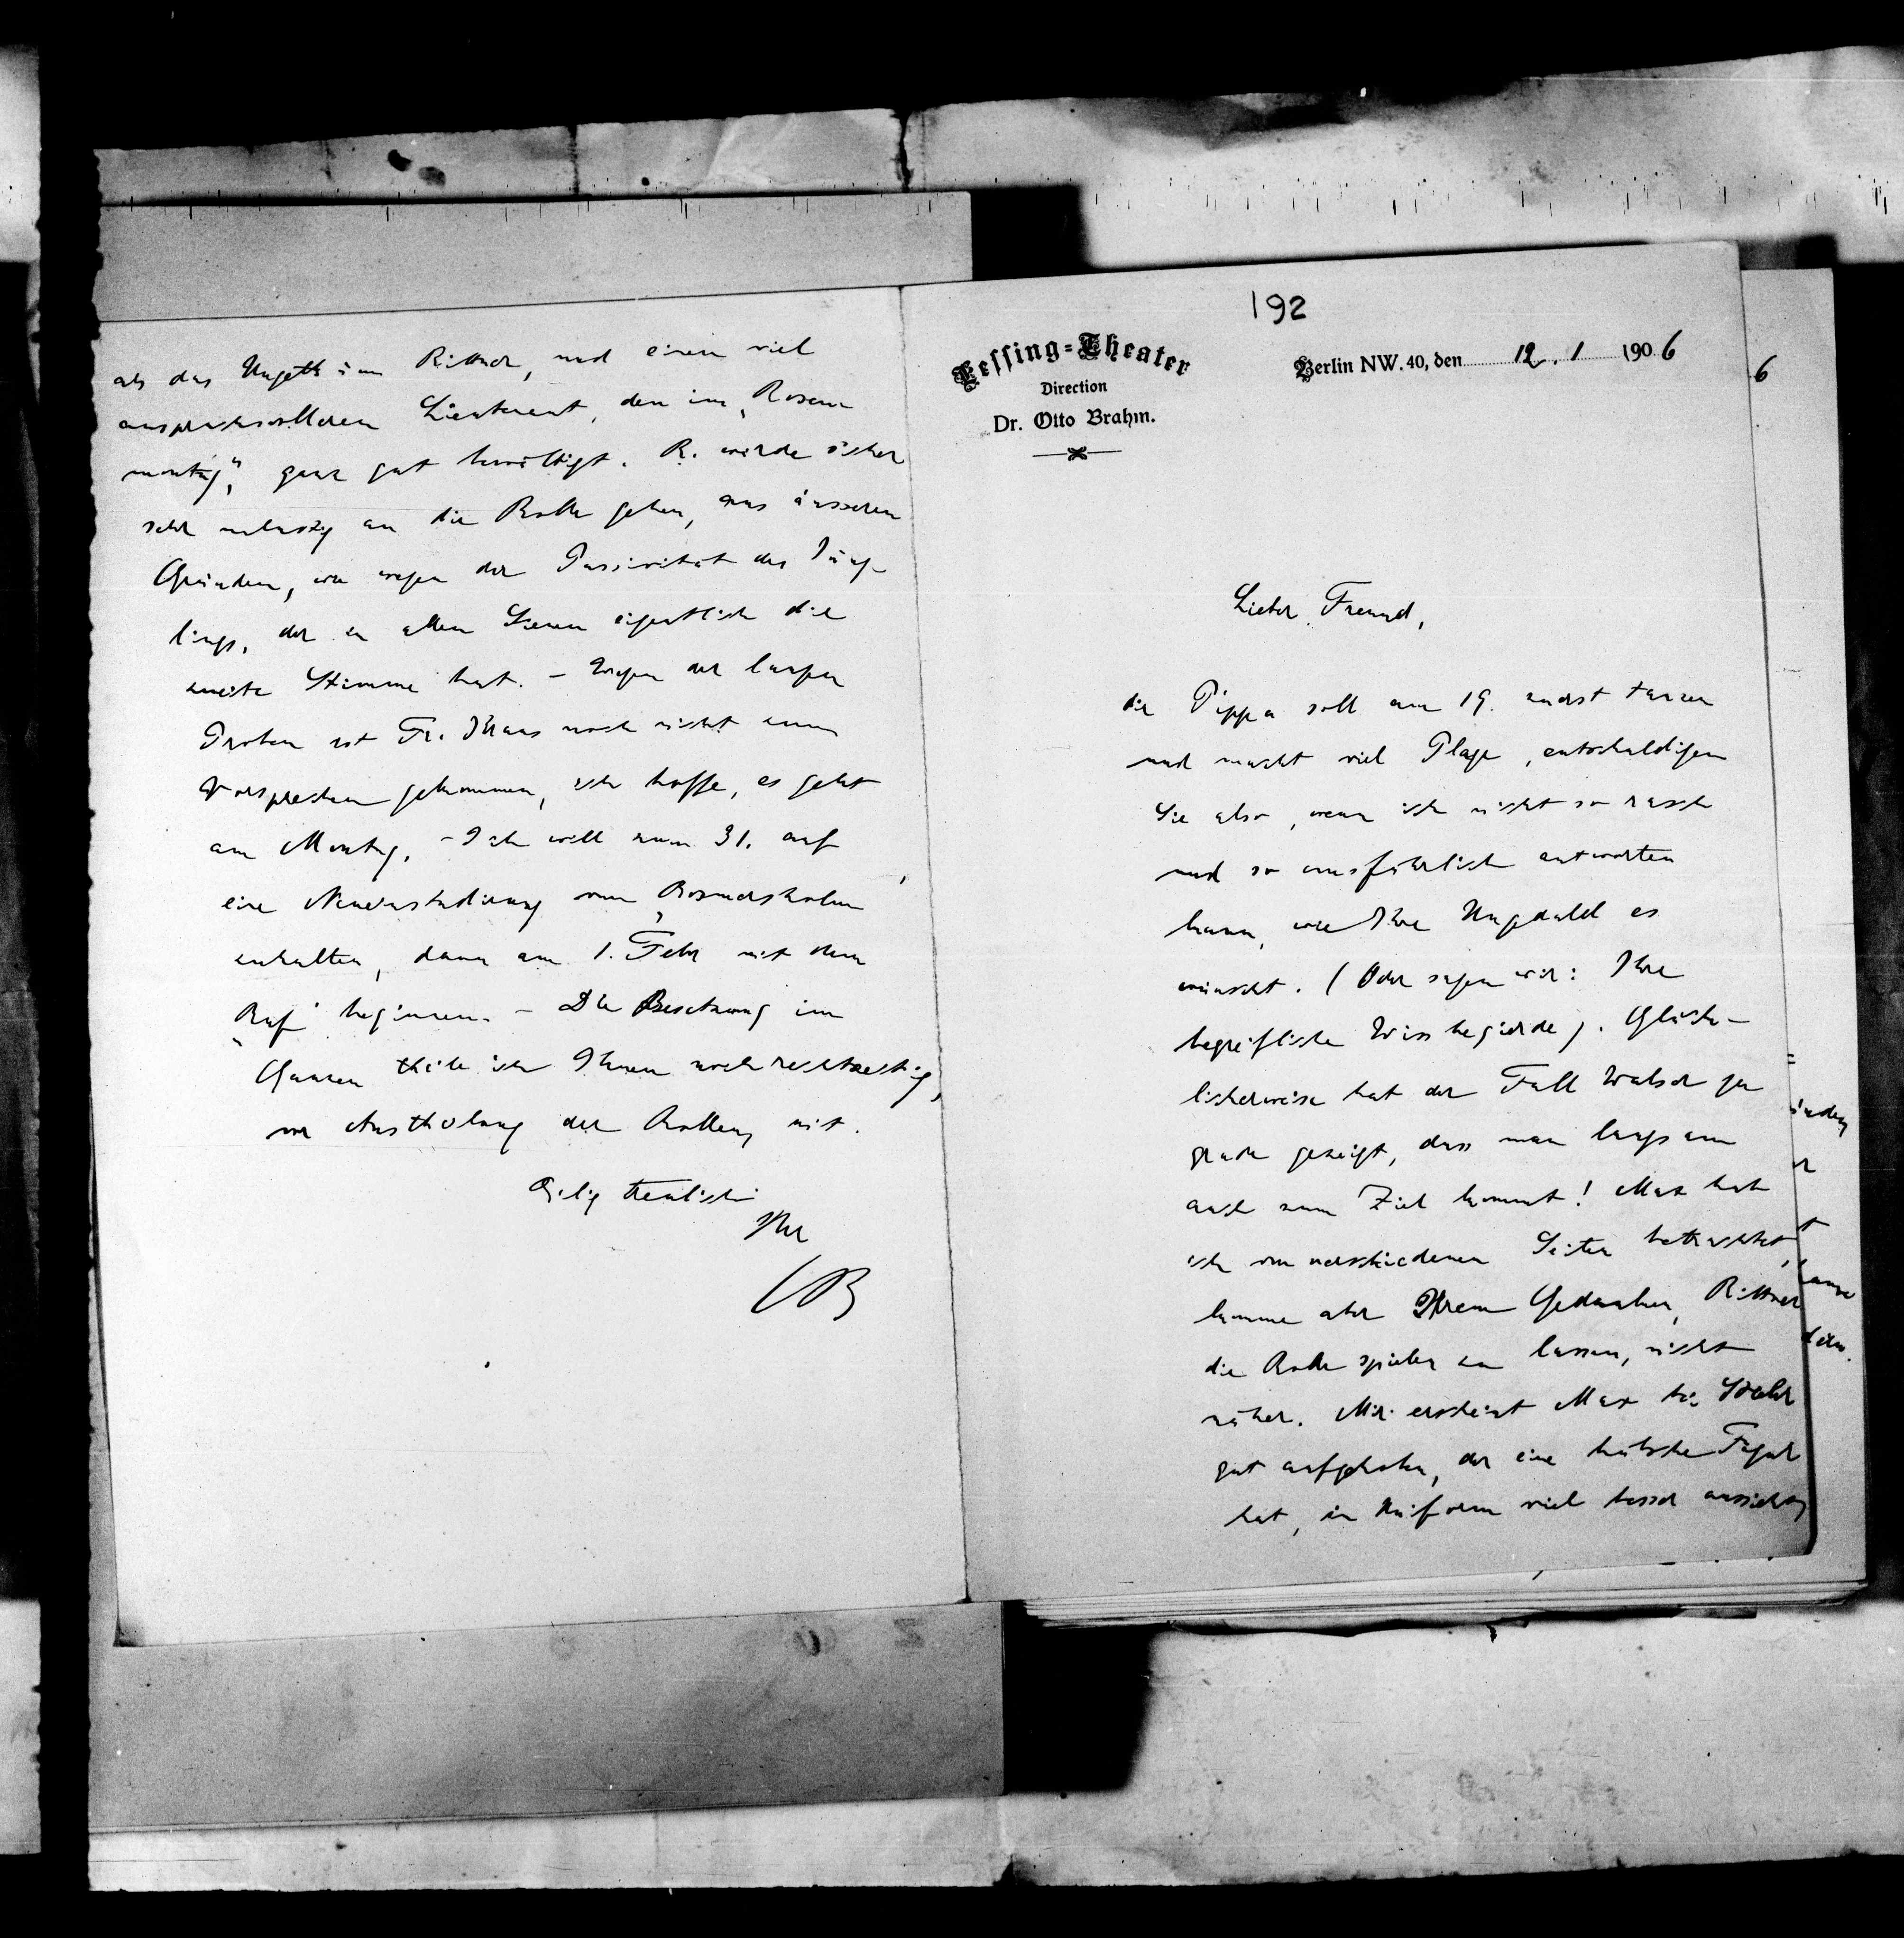 192
Lessing=Theater
Direction
Dr. Otto Brahm.
Berlin NW. 40, den 12. 1 1906
Lieber Freund,
die Pippa soll am 19. zuerst tanzen
und macht viel Plage, entschuldigen
Sie also, wenn ich nicht so rasch
und so ausführlich antworten
kann, wie Ihre Ungeduld es
wünscht. (Oder sagen wir: Ihre
begreifliche Wissbegierde). Glück-
licherweise hat der Fall Walser ge
grade gezeigt, dass man langsam
auch zum Ziel kommt! Max hab
ich von verschiedenen Seiten betrachtet,
komme aber Ihrem Gedanken, Rittner
die Rolle spielen zu lassen, nicht
näher. Mir erscheint Max bei Stieler
gut aufgehoben, der eine hübsche Figur
hat, in Uniform viel besser aussieht
als das Ungethüm Rittner, und einen viel
anspruchsvolleren Lieutenant, den im „Rosen
montag", ganz gut bewältigt. R. würde sicher
sehr unlustig an die Rolle gehen, aus äusseren
Gründen, wie wegen der Passivität des Jüng-
lings, der in allen Scenen eigentlich die
zweite Stimme hat. – Wegen der langen
Proben ist Fr. noch nicht zum
Vorsprechen gekommen, ich hoffe, es geht
am Montag. – Ich will zum 31. auf
eine Neueinstudirung von „Rosmersholm"
enhalten, dann am 1. Febr mit dem
„Ruf" beginnen. – Die Besetzung im
Ganzen theile ich Ihnen noch rechtzeitig,
vor Austheilung der Rollen, mit.
Eilig treulichst
Ihr
OB
6